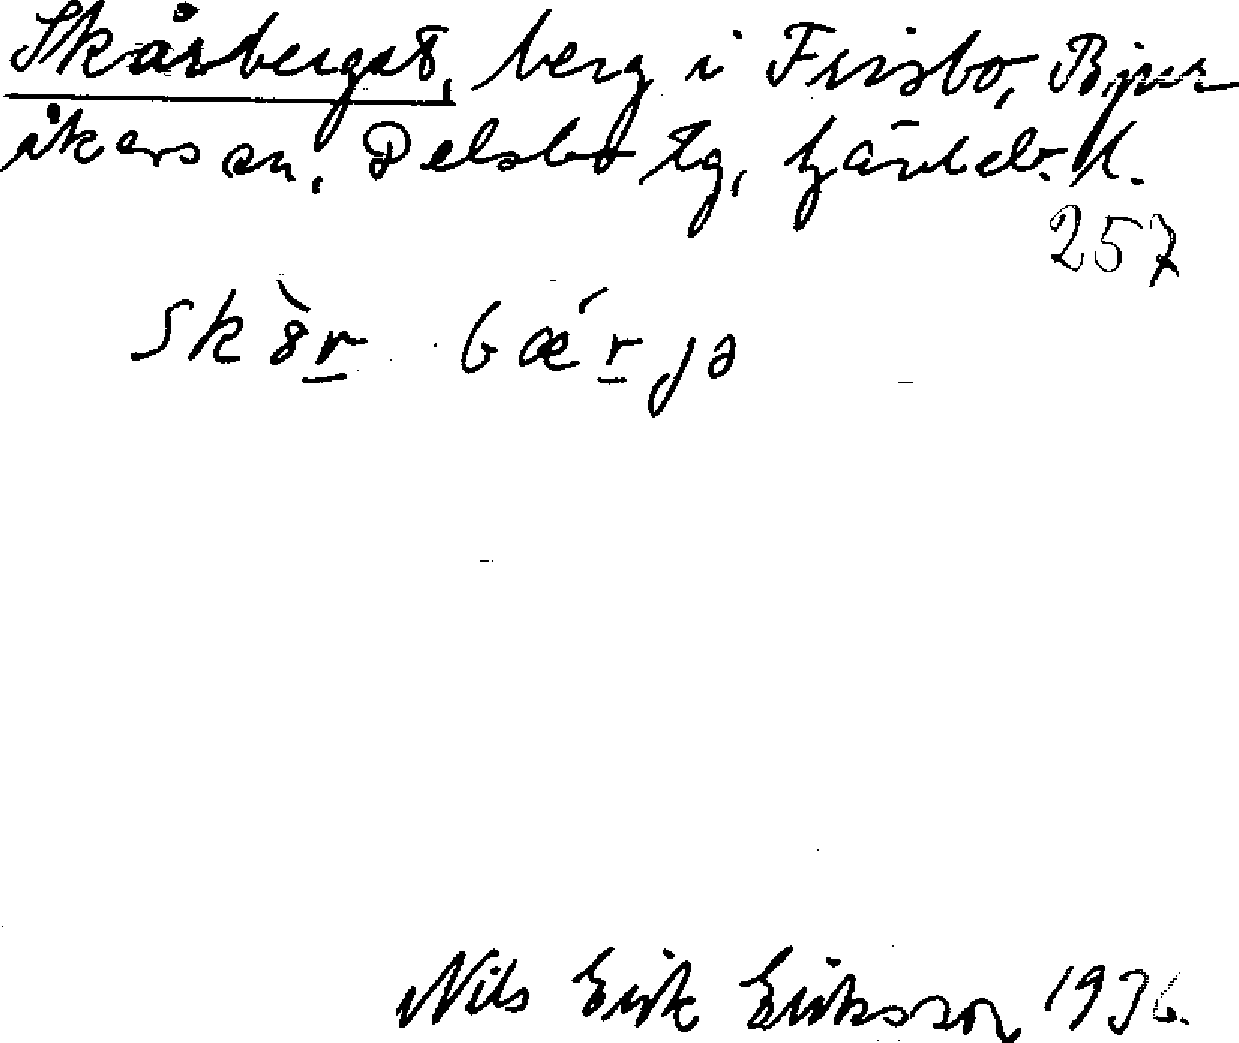 Skårberget, berg i Frisbo, Bjur
åkers sn, Delsbo tg, Gävleb. l.
257
Skȍr bǽrjə
Nils Erik Eriksson 1936.